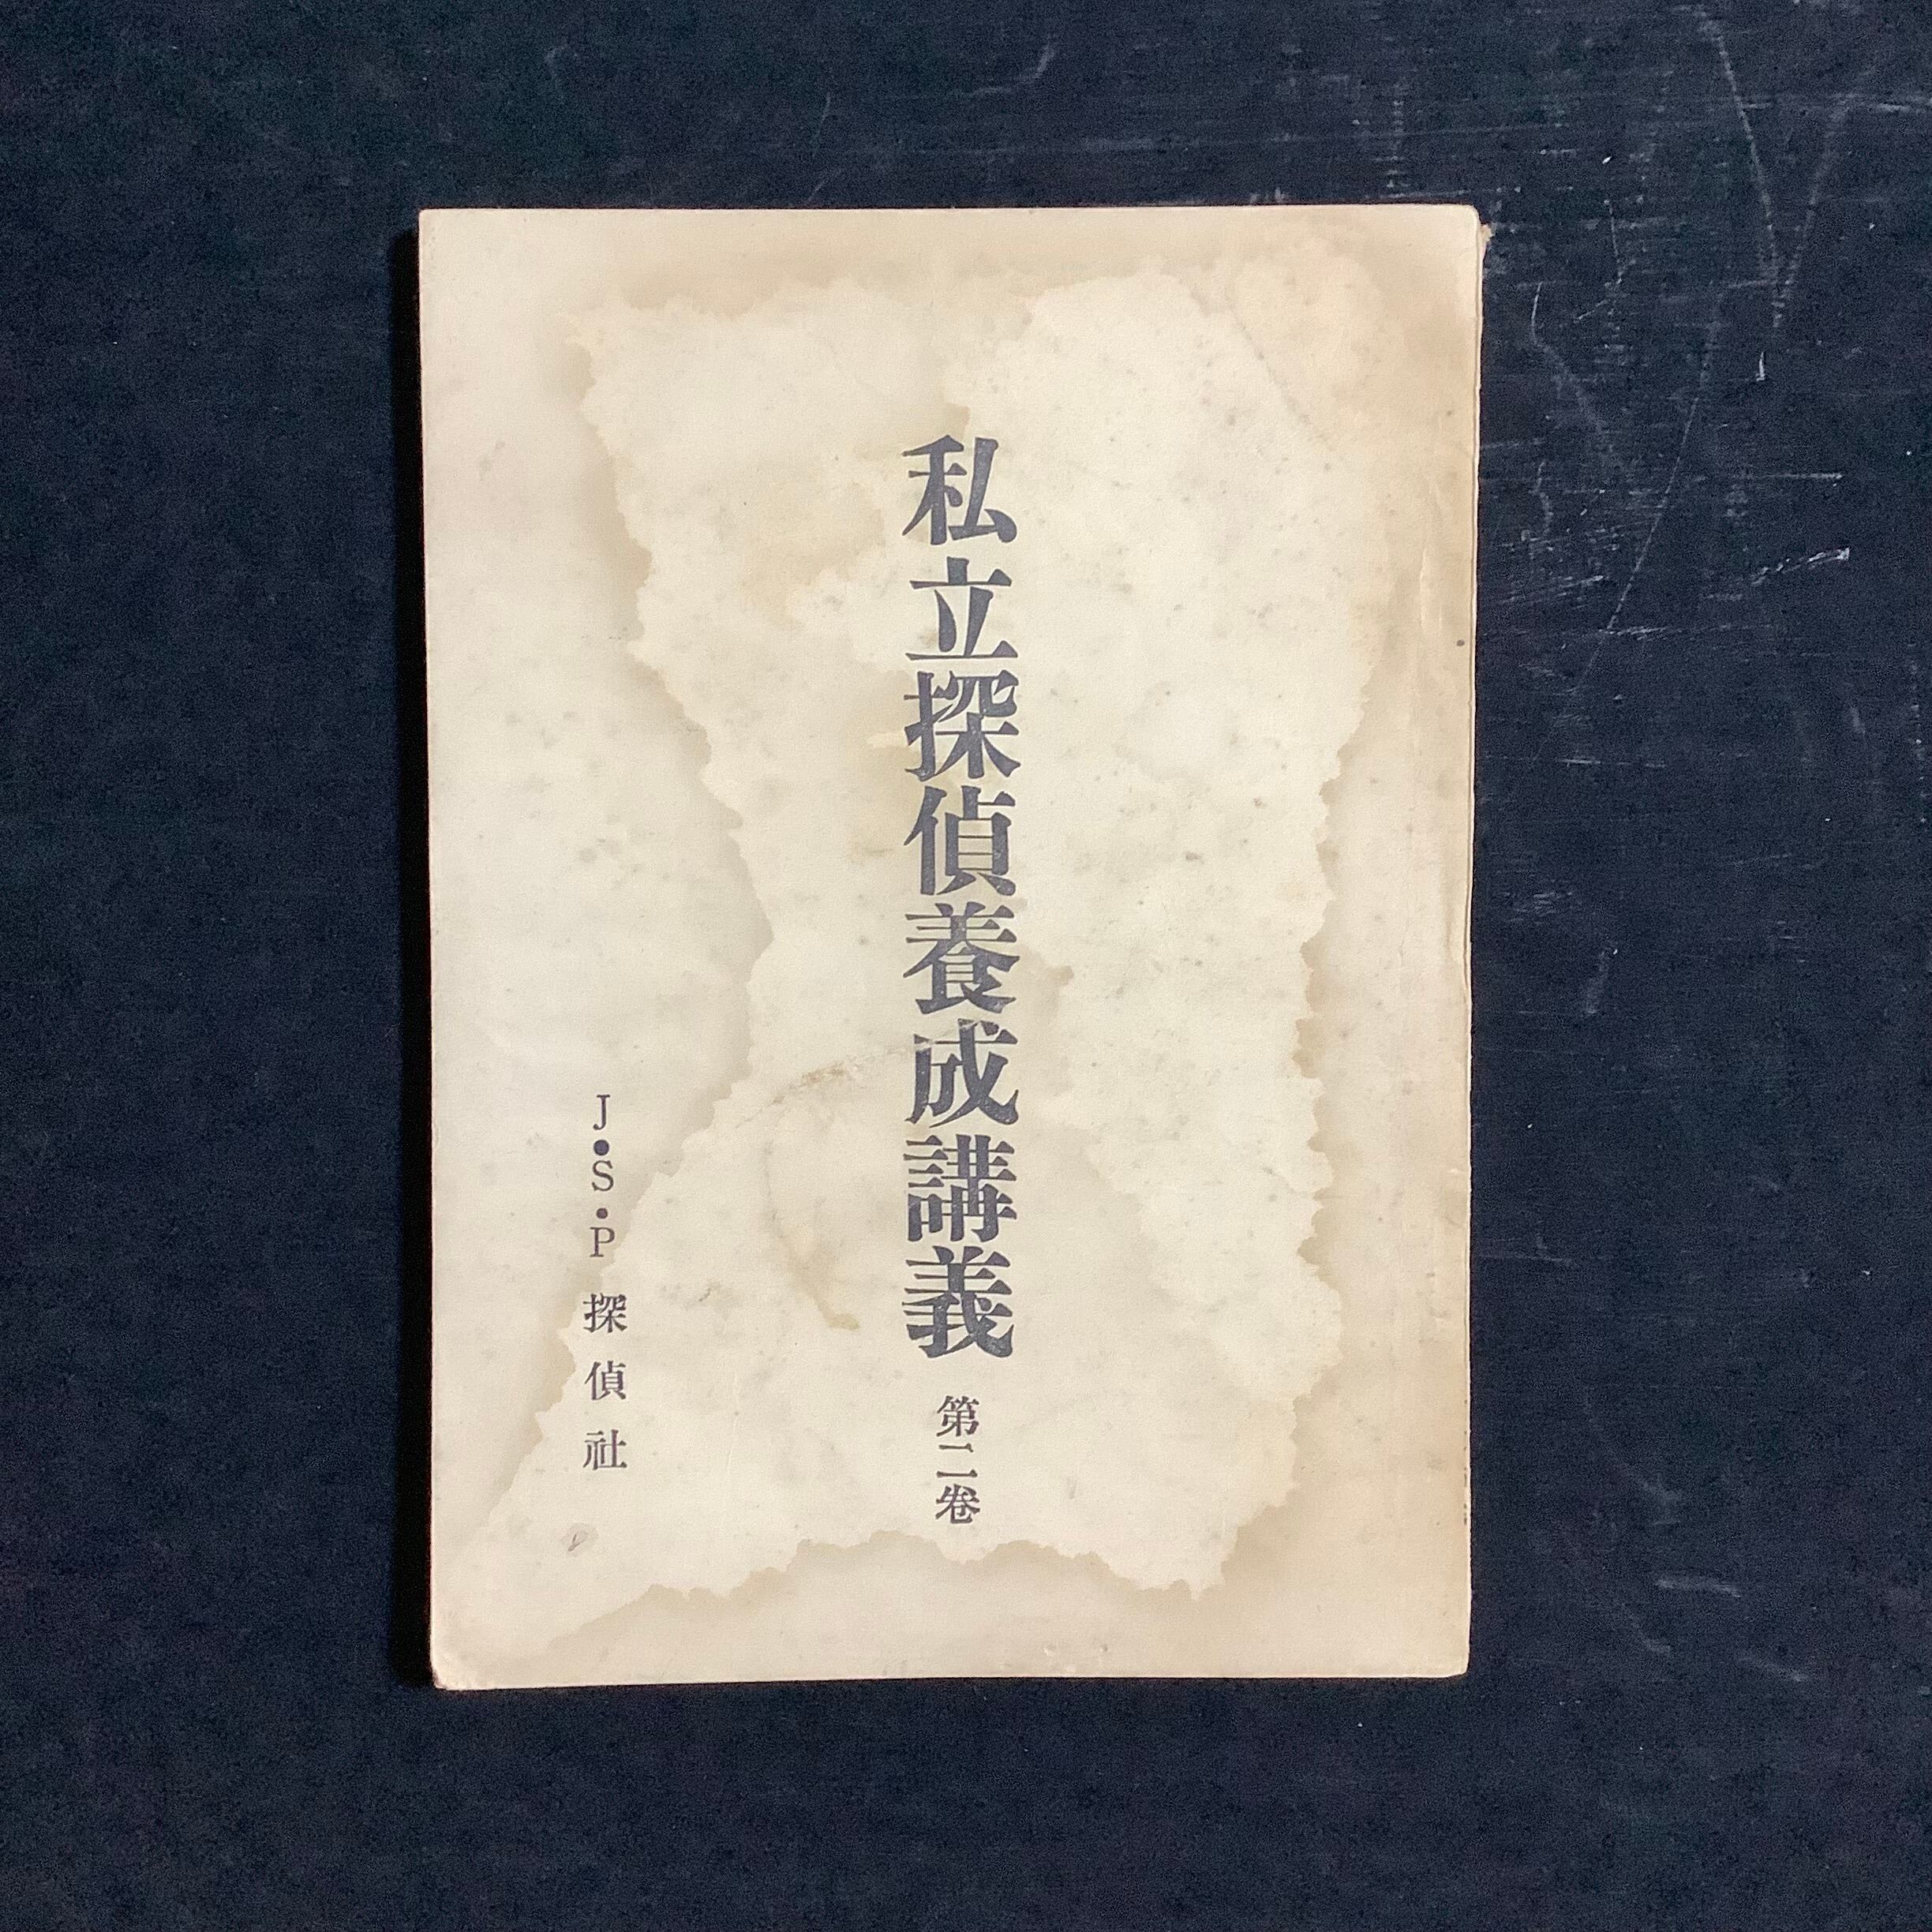 私立探偵養成講義 第二巻
J・S・P 探偵社